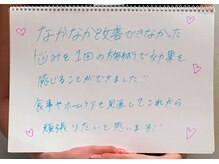 なかなか改善できなかった
悩みを1回の施術で効果を
感じることができました!!
食事やホームケアを見直してこれから
頑張りたいと思います!!